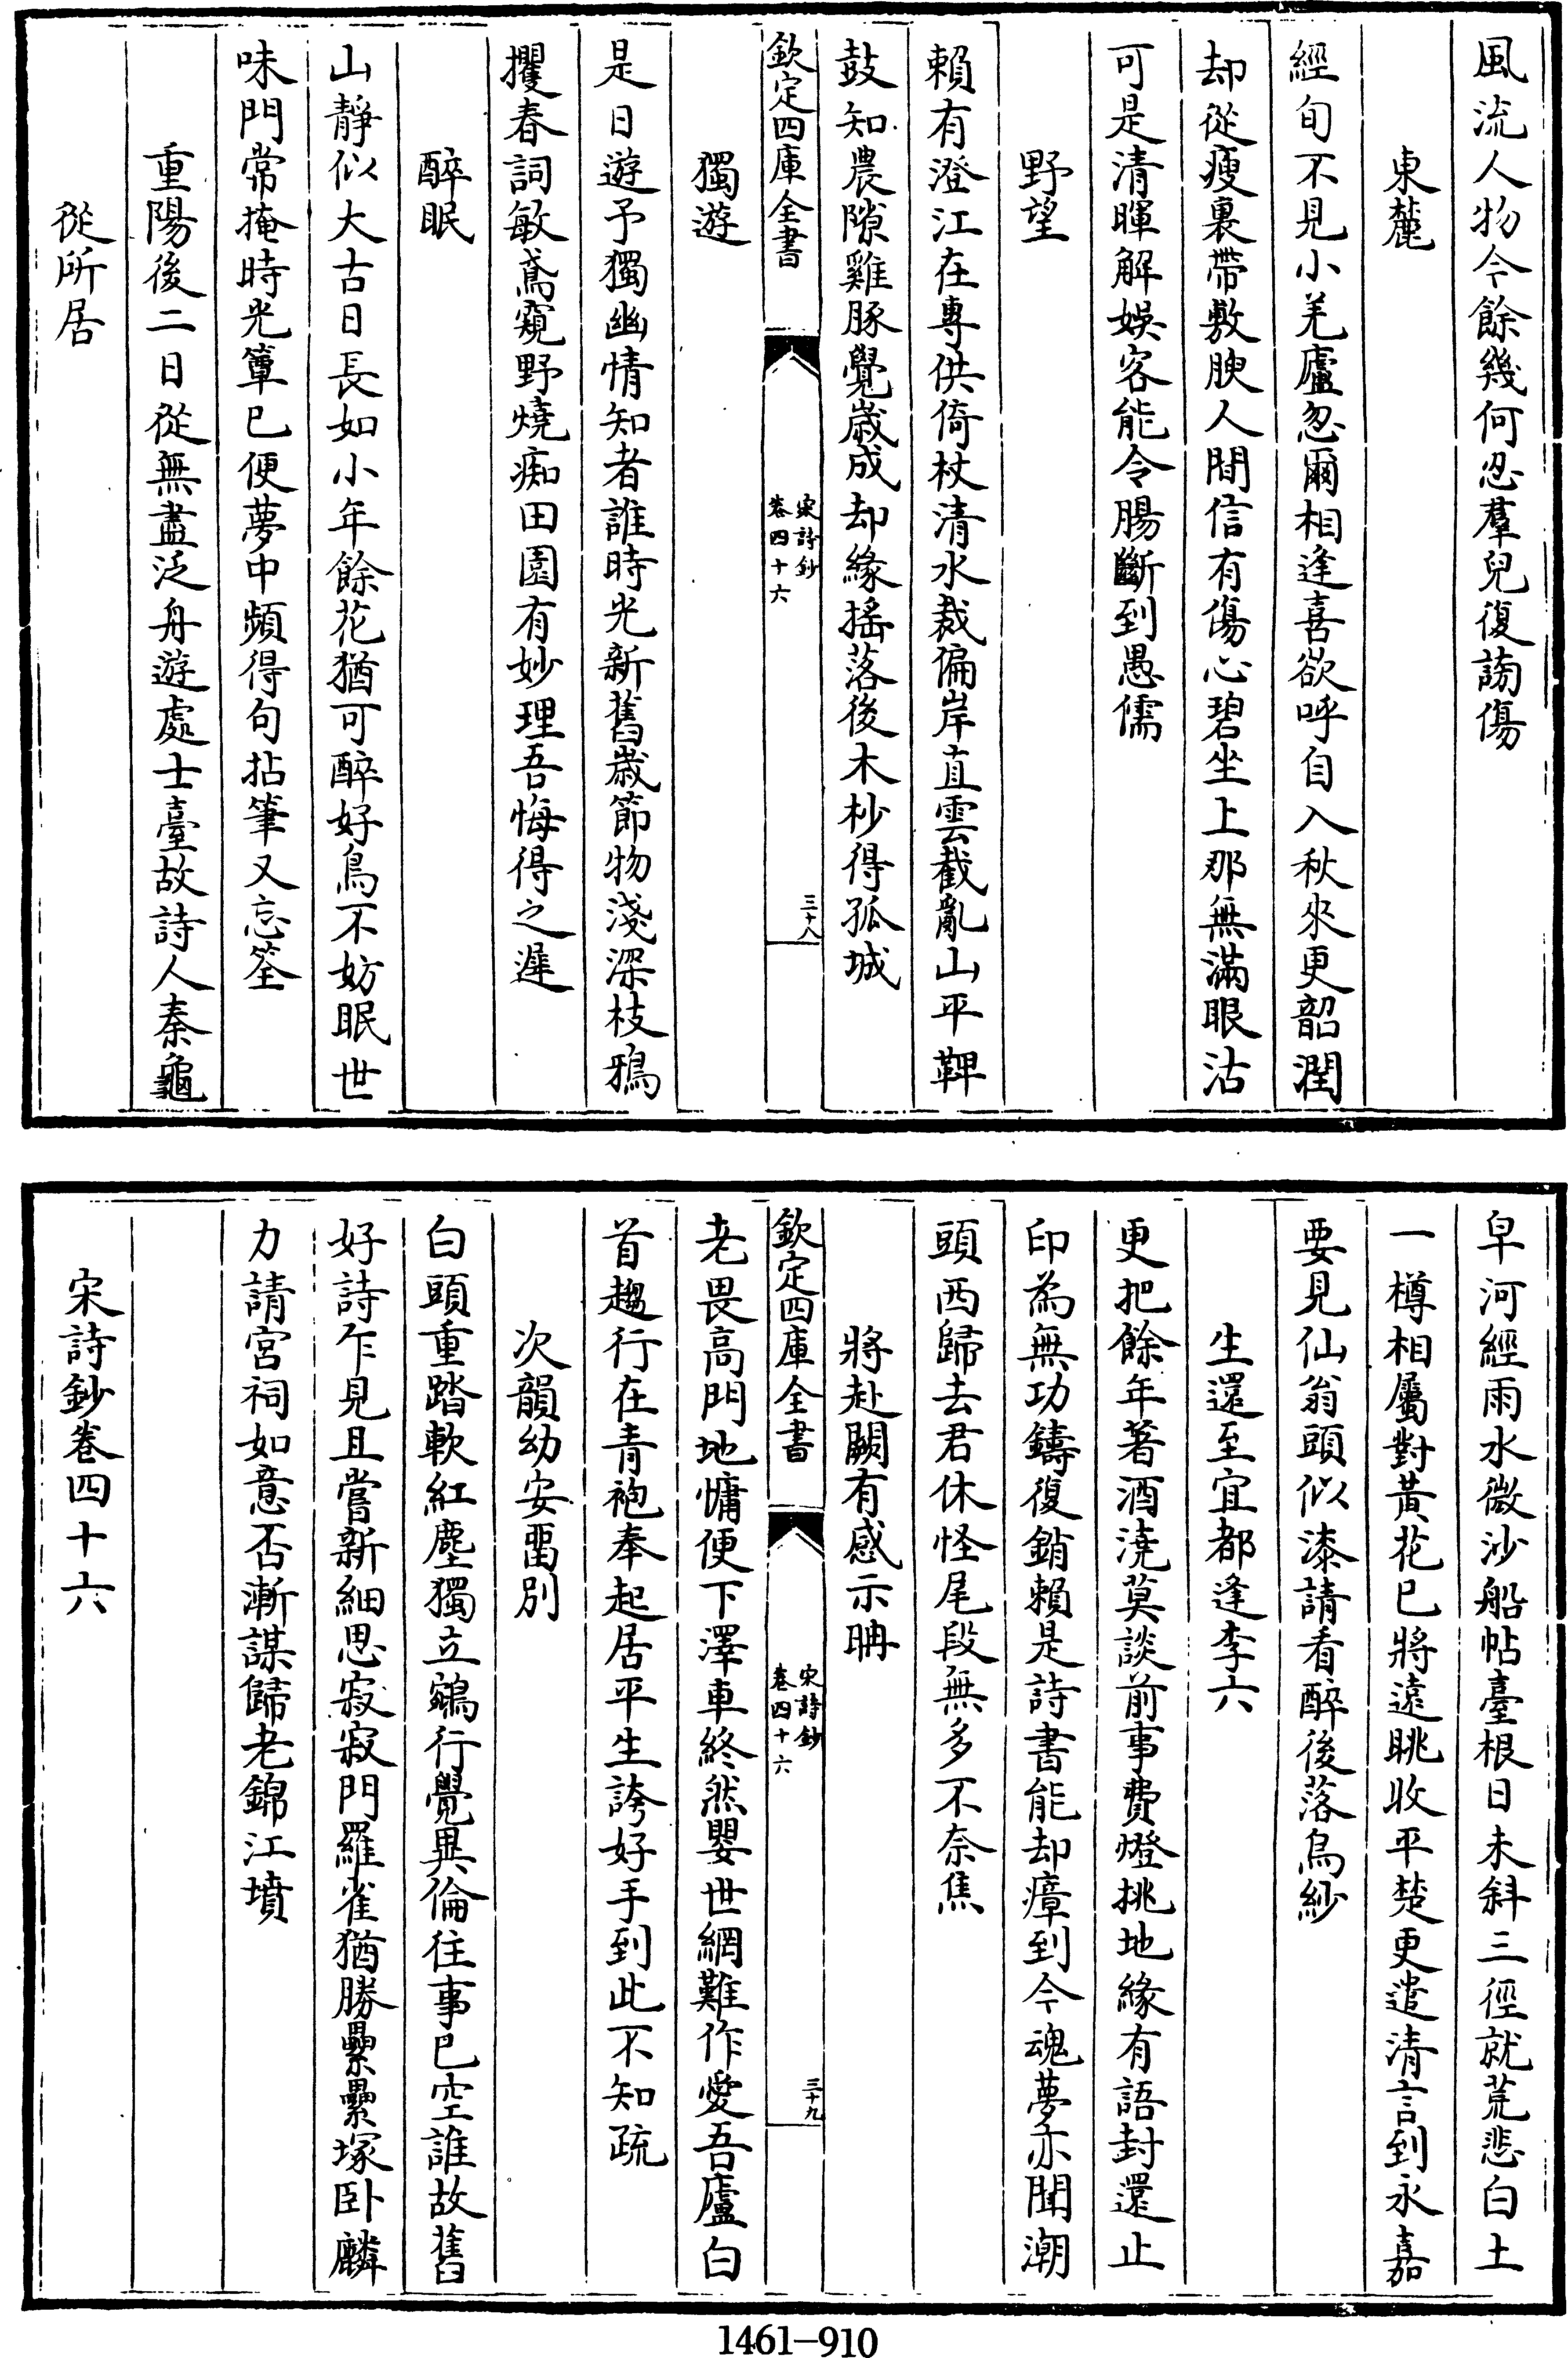 風流人物今餘幾何忍羣兒復謗傷
東麓
經旬不見小羌廬忽爾相逢喜欲呼自入秋來更韶潤
却從瘦裏帶敷腴人間信有傷心碧坐上那無滿眼沽
可是清暉解娛客能令腸斷到愚儒
野望
賴有澄江在專供倚杖清水裁偏岸直雲截亂山平鞞
鼓知農隙雞豚覺歲成却緣搖落後木杪得孤城
欽定四庫全書
宋詩鈔
卷四十六
三十八
獨遊
是日遊予獨幽情知者誰時光新舊歲節物淺深枝鴉
攫春詞敏鳶窺野燒痴田園有妙理吾悔得之遲
醉眠
山靜似大古日長如小年餘花猶可醉好鳥不妨眠世
味門常掩時光簟已便夢中頻得句拈筆又忘筌
重陽後二日從無盡泛舟遊處士臺故詩人秦龜
從所居
早河經雨水微沙船帖臺根日未斜三徑就荒悲白土
一樽相屬對黃花已將遠眺收平楚更遣清言到永嘉
要見仙翁頭似漆請看醉後落烏紗
生還至宜都逢李六
更把餘年著酒澆莫談前事費燈挑地緣有語封還止
印為無功鑄復銷賴是詩書能却瘴到今魂夢亦聞潮
頭西歸去君休怪尾段無多不奈焦
將赴闕有感示聃
欽定四庫全書
宋詩鈔
卷四十六
三十九
老畏高門地慵便下澤車終然嬰世網難作愛吾廬白
首趨行在青袍奉起居平生誇好手到此不知疏
次韻幼安畱別
白頭重踏軟紅塵獨立鵷行覺異倫往事已空誰故舊
好詩乍見且嘗新細思寂寂門羅雀猶勝纍纍塚卧麟
力請宮祠如意否漸謀歸老錦江墳
宋詩鈔卷四十六
1461-910